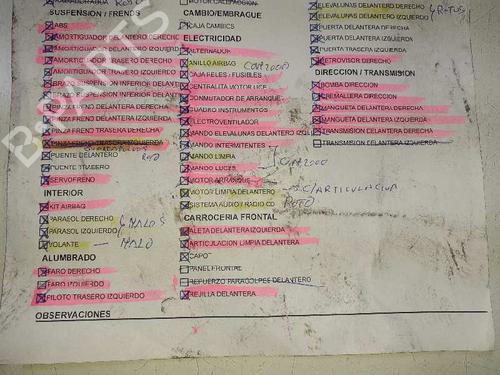 SUSPENSION / FRENOS
ABS
AMORTIGUADOR DELANTERO DERECHO
AMORTIGUADOR DELANTERO IZQUIERDO
AMORTIGUADOR TRASERO DERECHO
AMORTIGUADOR TRASERO IZQUIERDO
BRAZO SUSPENSION INFERIOR DELANTERO
BRAZO SUSPENSION INFERIOR DELANTERO
PINZA FRENO DELANTERA DERECHA
PINZA FRENO DELANTERA IZQUIERDA
PINZA FRENO TRASERA DERECHA
PINZA FRENO TRASERA IZQUIERDA
PUENTE DELANTERO ROTO
PUENTE TRASERO
SERVOFRENO
INTERIOR
KIT AIRBAG
PARASOL DERECHO
PARASOL IZQUIERDO MALOS
VOLANTE — MALO
ALUMBRADO
FARO DERECHO
FARO IZQUIERDO
PILOTO TRASERO IZQUIERDO
OBSERVACIONES
CAMBIO/EMBRAGUE
CAJA CAMBIOS
ELECTRICIDAD
ALTERNADOR
ANILLO AIRBAG CORTADO
CAJA RELES / FUSIBLES
CENTRALITA MOTOR UCE
CONMUTADOR DE ARRANQUE
CUADRO INSTRUMENTOS
ELECTROVENTILADOR
MANDO ELEVALUNAS DELANTERO IZQUIERDO
MANDO INTERMITENTES
MANDO LIMPIA
MANDO LUCES CORTADO
MOTOR ARRANQUE
MOTOR LIMPIA DELANTERO S/ARTICULACION
SISTEMA AUDIO / RADIO CD ROTO
CARROCERIA FRONTAL
ALETA DELANTERA IZQUIERDA
ARTICULACION LIMPIA DELANTERA
CAPO
PANEL FRONTAL
REFUERZO PARAGOLPES DELANTERO
REJILLA DELANTERA
ELEVALUNAS DELANTERO DERECHO
ELEVALUNAS DELANTERO IZQUIERDO
PUERTA DELANTERA DERECHA
PUERTA DELANTERA IZQUIERDA
PUERTA TRASERA IZQUIERDA
RETROVISOR DERECHO
DIRECCION / TRANSMISION
BOMBA DIRECCION
CREMALLERA DIRECCION
MANGUETA DELANTERA DERECHA
MANGUETA DELANTERA IZQUIERDA
TRANSMISION DELANTERA DERECHA
TRANSMISION DELANTERA IZQUIERDA